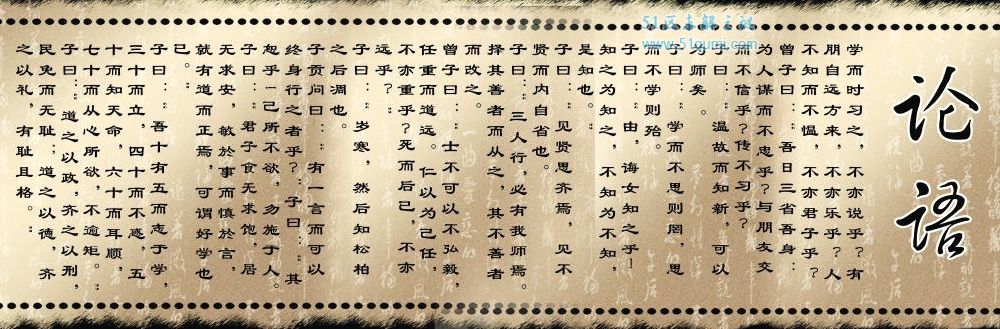 论语
学而时习之，不亦说乎？有
朋自远方来，不亦乐乎？人
不知而不愠，不亦君子乎？
曾子曰：“吾日三省吾身：
为人谋而不忠乎？与朋友交
而不信乎？传不习乎？
子曰：“温故而知新，可以
为师矣。
子曰：“学而不思则罔，思
而不学则殆。
子曰：“由，诲女知之乎！
知之为知之，不知为不知，
是知也。
子曰：“见贤思齐焉，见不
贤而内自省也。
子曰：“三人行，必有我师焉。
择其善者而从之，其不善者
而改之。
曾子曰：“士不可以不弘毅，
任重而道远。仁以为己任，
不亦重乎？死而后已，不亦
远乎？”
子曰：“岁寒，然后知松柏
之后凋也。
子贡问曰：“有一言而可以
终身行之者乎？”子曰：“其
恕乎！己所不欲，勿施于人。
子曰：“君子食无求饱，居
无求安，敏于事而慎于言，
就有道而正焉，可谓好学也
已。”
子曰：“吾十有五而志于学，
三十而立，四十而不惑，五
十而知天命，六十而耳顺，
七十而从心所欲，不逾矩。”
子曰：“道之以政，齐之以刑，
民免而无耻；道之以德，齐
之以礼，有耻且格。”